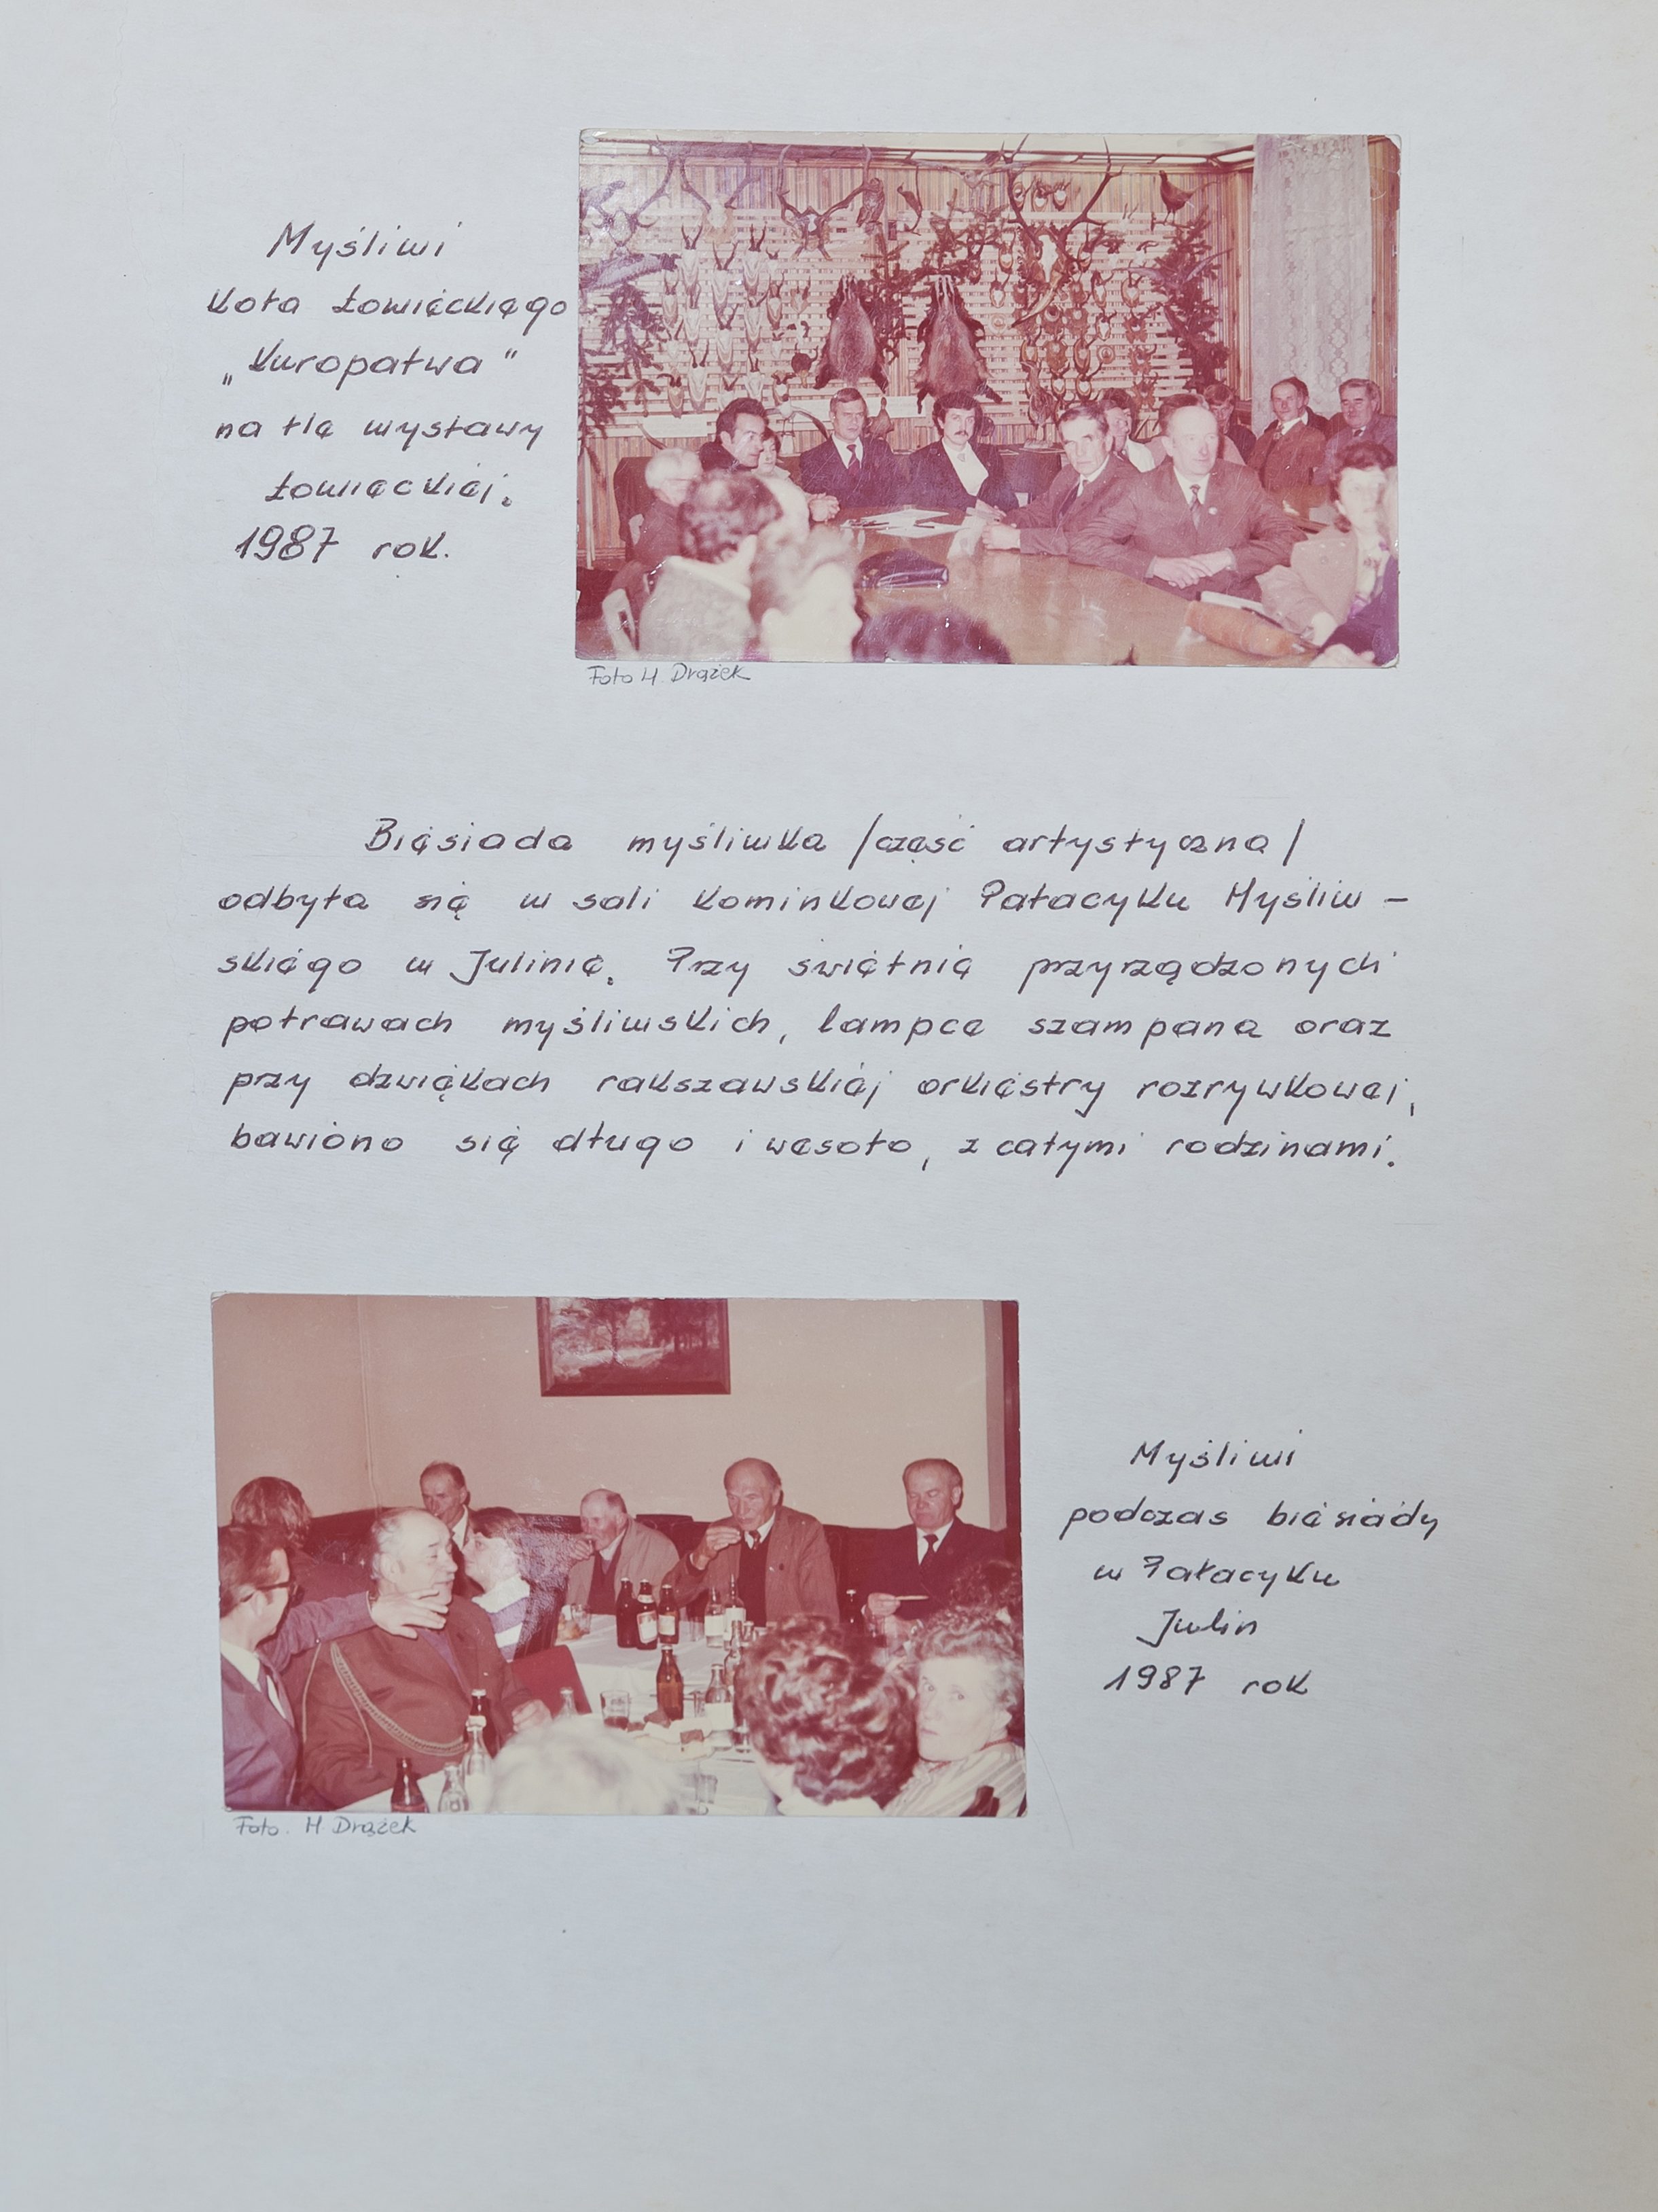 Myśliwi
Koła Łowieckiego
„Kuropatwa"
na tle wystawy
Łowieckiej.
1987 rok.
Foto H. Drążek
Biesiada myśliwka /część artystyczna/
odbyła się w sali Kominkowej Pałacyku Myśliw -
skiego w Julinie. Przy świetnie przyrządzonych
potrawach myśliwskich, lampce szampana oraz
przy dzwiękach rakszawskiej orkiestry rozrywkowej,
bawiono się długo i wesoło, z całymi rodzinami.
Myśliwi
podczas biesiady
w Pałacyku
Julin
1987 rok
Foto. H Drążek